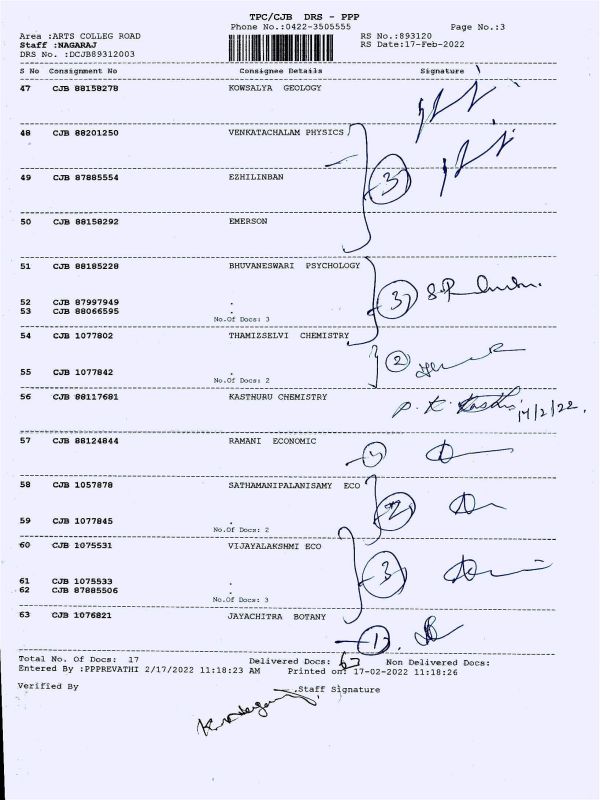 TPC/CJB DRS - PPP
Phone No.:0422-3505555 Page No.:3
Area :ARTS COLLEG ROAD RS No.:893120
Staff :NAGARAJ RS Date:17-Feb-2022
DRS No. :DCJB89312003
S No Consignment No Consignee Details Signature
47 CJB 88158278 KOWSALYA GEOLOGY
48 CJB 88201250 VENKATACHALAM PHYSICS
49 CJB 87885554 EZHILINBAN
3
50 CJB 88158292 EMERSON
51 CJB 88185228 BHUVANESWARI PSYCHOLOGY
52 CJB 87997949 .
3
53 CJB 88066595 .
No.Of Docs: 3
54 CJB 1077802 THAMIZSELVI CHEMISTRY
2
55 CJB 1077842 .
No.Of Docs: 2
56 CJB 88117681 KASTHURU CHEMISTRY
P. K. 17/2/22.
57 CJB 88124844 RAMANI ECONOMIC
58 CJB 1057878 SATHAMANIPALANISAMY ECO
2
59 CJB 1077845 .
No.Of Docs: 2
60 CJB 1075531 VIJAYALAKSHMI ECO
3
61 CJB 1075533 .
62 CJB 87885506 .
No.Of Docs: 3
63 CJB 1076821 JAYACHITRA BOTANY
1
Total No. Of Docs: 17 Delivered Docs: 63 Non Delivered Docs:
Entered By :PPPREVATHI 2/17/2022 11:18:23 AM Printed on: 17-02-2022 11:18:26
Verified By Staff Signature